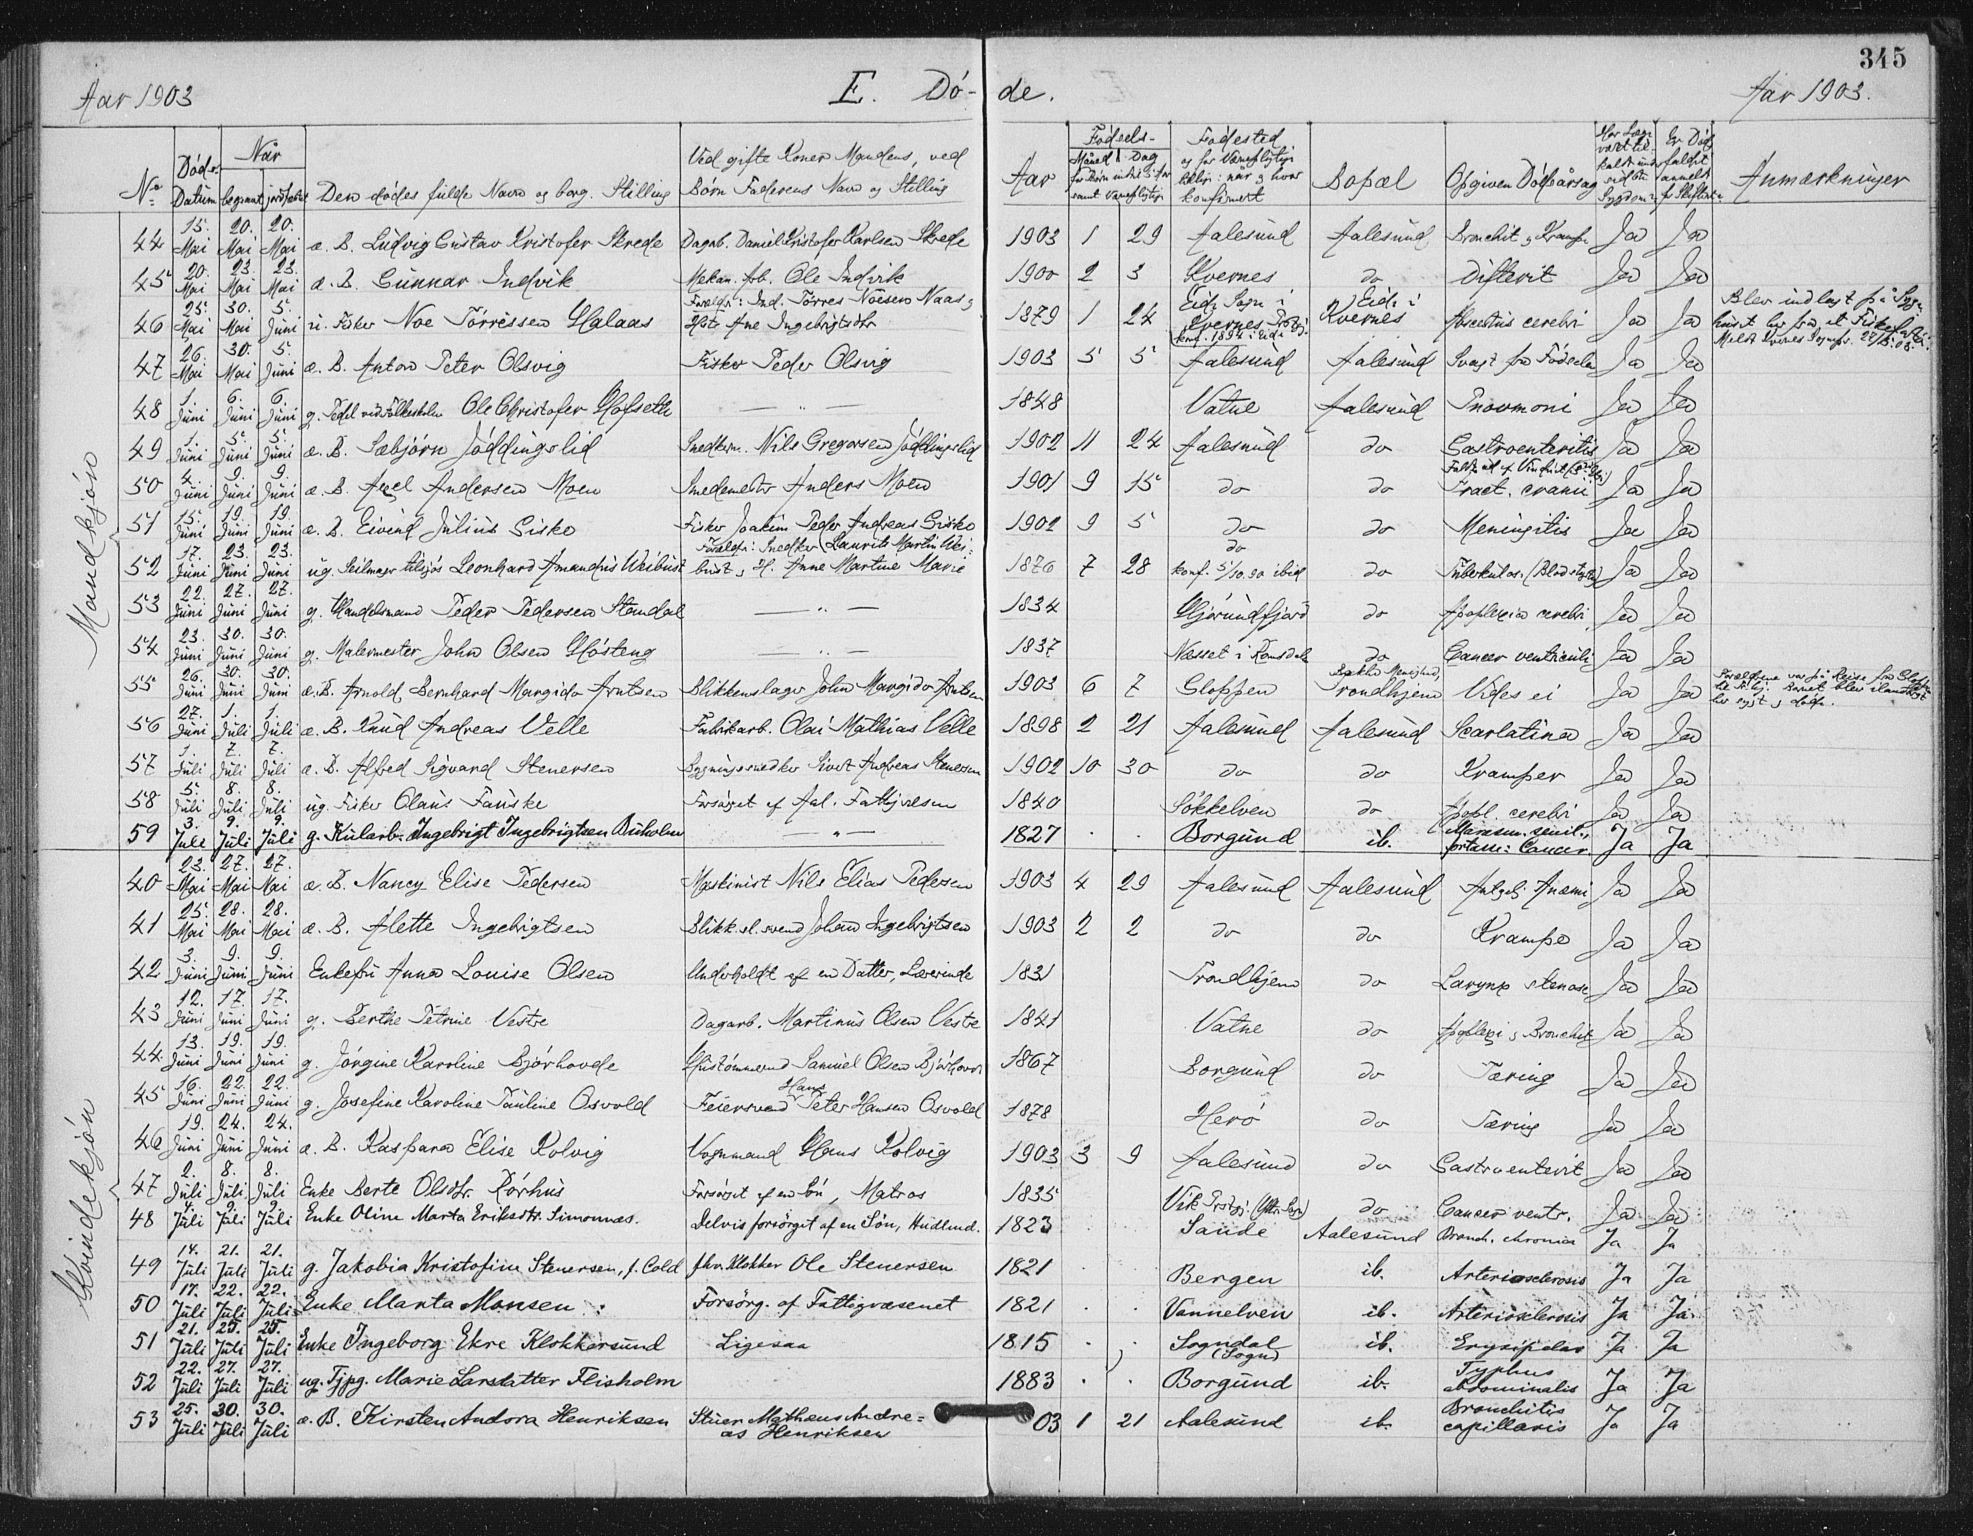 345
Aar 1903 E. Dö- de. Aar 1903.
No Døds-Datum Når begravet jordfæstet Den dødes fulde Navn og borg. Stilling Ved gifte Koner Mandens, ved Børn Faderens Navn og Stilling Aar Fødsels- Måned Dag Fødested Bopæl Opgiven Dödsårsag Anmærkninger
Mandkjön
44 15. Mai 20. Mai 20. Mai æ. B. Ludvig Gustav Kristofer Skrede Dagarb. Daniel Kristofer Karlsen Skrede 1903 1 29 Aalesund Aalesund Bronchit og Krampe Ja Ja
45 20. Mai 23. Mai 23. Mai æ. B. Gunnar Indvik Mekan. arb. Ole Indvik 1900 2 3 Kvernes do Difterit Ja Ja
46 25. Mai 30. Mai 5. Juni u. Fisker Noe Törressen Halaas Foræld: Ind. Törres Noesen Naas og Hst. Ane Ingebrigtsdtr 1879 1 24 Eids Sogn i Kvernes Prstgj. konf. 1894 i Eid Eid i Kvernes Abscestus cerebri Ja Ja Blev indlagt på Syge-huset her fra et Fiskefartøi. Meldt Kvernes Sognepr. 27/5.03.
47 26. Mai 30. Mai 5. Juni æ. B. Anton Peter Olsvig Fisker Peder Olsvig 1903 5 5 Aalesund Aalesund Svagt fra Födselen Ja Ja
48 1. Juni 6. Juni 6. Juni g. Pedel ved Folkeskolen Ole Christofer Hofseth — " — 1848 Vatne Aalesund Pnevmoni Ja Ja
49 1. Juni 5. Juni 5. Juni æ. B. Sæbjørn Jöddingslid Snedkerm. Nils Gregorsen Jöddingslid 1902 11 24 Aalesund do Gastroenteritis Ja Ja
50 4. Juni 9. Juni 9. Juni æ. B. Axel Andersen Moen Smedemester Anders Moen 1901 9 15 do do Fract. cranii Ja Ja
51 15. Juni 19. Juni 19. Juni æ. B. Eivind Julius Giske Fisker Joakim Peder Andreas Giske 1902 9 5 do do Meningitis Ja Ja
52 17. Juni 23. Juni 23. Juni ug. Seilmager tilsjøs Leonhard Amandus Weibust Forældr: Snedker Laurits Martin Wei-bust og H. Anne Martine Marie 1876 7 28 do konf. 5/10.90 ibid do Tuberkulos. (Blodstyrtn.) Ja Ja
53 22. Juni 27. Juni 27. Juni g. Handelsmand Peder Pedersen Standal — " — 1834 Hjörundfjord do Apoplexia cerebri Ja Ja
54 23. Juni 30. Juni 30. Juni g. Malermester John Olsen Hösteng — " — 1837 Næsset i Romsdal do Cancer ventriculi Ja Ja
55 26. Juni 30. Juni 30. Juni æ. B. Arnold Bernhard Margido Arntsen Blikkenslager John Margido Arntsen 1903 6 7 Gloppen Bakke Menighed, Trondhjem Vides ei Ja Ja Forældrene var på Reise fra Gloppen til Trhj. Barnet blev ilandbragt her sygt og døde.
56 27. Juni 1. Juli 1. Juli æ. B. Knud Andreas Velle Fabrikarb. Olai Mathias Velle 1898 2 21 Aalesund Aalesund Scarlatina Ja Ja
57 1. Juli 7. Juli 7. Juli æ. B. Alfred Sigvard Stenersen Bygningssnedker Sivert Andreas Stenersen 1902 10 30 do do Kramper Ja Ja
58 5. Juli 8. Juli 8. Juli ug. Fisker Olaus Fauske Forsörget af Aal. Fattigvæsen 1840 Sökkelven do Apopl. cerebri Ja Ja
59 3. Juli 9. Juli 9. Juli g. Kularb. Ingebrigt Ingebrigtsen Buholm — " — 1827 . . Borgund ib. Marasm. senil., fortass: Cancer Ja Ja
Kvindekjön
40 23. Mai 27. Mai 27. Mai æ. B. Nancy Elise Pedersen Maskinist Nils Elias Pedersen 1903 4 29 Aalesund Aalesund Anæmi Ja Ja
41 25. Mai 28. Mai 28. Mai æ. B. Alette Ingebrigtsen Blikk.sl.svend Johan Ingebrigtsen 1903 2 2 do do Krampe Ja Ja
42 3. Juni 9. Juni 9. Juni Enkefru Anna Louise Olsen Underholdt af en Datter, Lærerinde 1831 Trondhjem do Larynx stenose Ja Ja
43 12. Juni 17. Juni 17. Juni g. Berthe Petrine Vestre Dagarb. Martinus Olsen Vestre 1841 Vatne do Apoplexi og Bronchit Ja Ja
44 13. Juni 19. Juni 19. Juni g. Jörgine Karoline Bjørhovde Hustömmermand Samuel Olsen Bjørhovde 1867 Borgund do Tæring Ja Ja
45 16. Juni 22. Juni 22. Juni g. Josefine Karoline Pauline Osvold Feiersvend Hans Peter Hansen Osvold 1878 Herö do Tæring Ja Ja
46 19. Juni 24. Juni 24. Juni æ. B. Kaspara Elise Kolvig Vognmand Hans Kolvig 1903 3 9 Aalesund do Gastroenterit Ja Ja
47 2. Juli 8. Juli 8. Juli Enke Berte Olsdtr. Rörhus Forsörget af en Sön, Matros 1835 Vik Prstgj. do Cancer ventr. Ja Ja
48 4. Juli 9. Juli 9. Juli Enke Oline Marta Eriksdtr. Simonnæs. Delvis forsörget af en Sön, Hudlend. 1823 . . Sande Aalesund Bronch. chronica Ja Ja
49 14. Juli 21. Juli 21. Juli g. Jakobia Kristofine Stenersen, f. Cold fhv. Klokker Ole Stenersen 1821 . . Bergen ib. Arteriosclerosis Ja Ja
50 17. Juli 22. Juli 22. Juli Enke Marta Monsen Forsörg. af Fattigvæsenet 1821 . . Vannelven ib. Arteriosclerosis Ja Ja
51 21. Juli 25. Juli 25. Juli Enke Ingeborg Ekre Klokkersund Ligesaa 1815 . . Sogndal (Sogn) ib. Erysipelas Ja Ja
52 22. Juli 27. Juli 27. Juli ug. Tjpg. Marie Larsdatter Flisholm 1883 . . Borgund ib. Typhus abdominalis Ja Ja
53 25. Juli 30. Juli 30. Juli æ. B. Kirsten Andora Henriksen Stuer Mathæus Andre=as Henriksen 03 1 21 Aalesund ib. Bronchitis capillaris Ja Ja